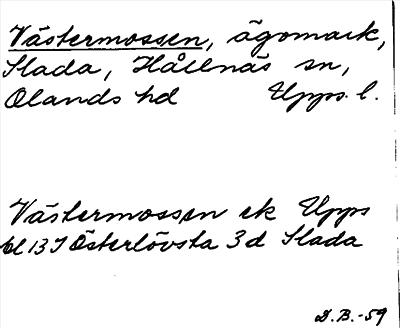 Västermossen, ägomark,
Slada, Hållnäs sn,
Olands hd Upps. l.
Västermossen ek Upps
bl 13 I Österlövsta 3 d Slada
D.B.-59